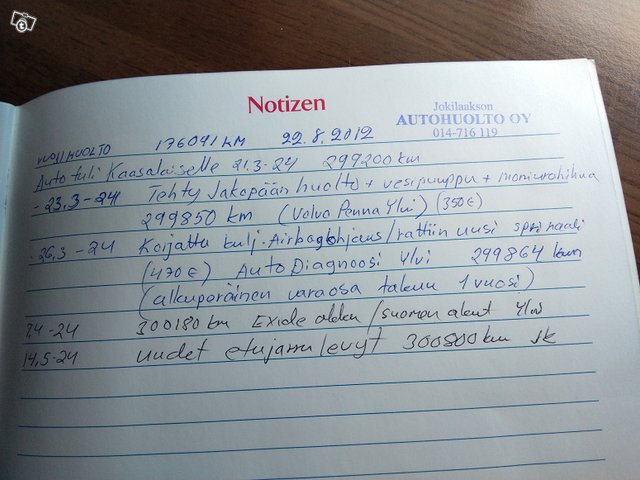 Notizen
Jokilaakson
AUTOHUOLTO OY
014-716 119
VUOSIHUOLTO 176091 KM 22.8.2012
Auto tuli Kaasalaiselle 21.3-24 299200 km
- 23.3-24 Tehty Jakopään huolto + vesipumppu + moniurahihna
299850 km (Volvo Penna Ylvi) (350€)
- 26.3-24 Korjattu kulj. Airbag ohjaus/rattiin uusi
(470€) Auto Diagnoosi Ylvi 299864 km
(alkuperäinen varaosa takuu 1 vuosi)
7.4-24 300180 km Exide
14.5-24 uudet etujarrulevyt 300800 km